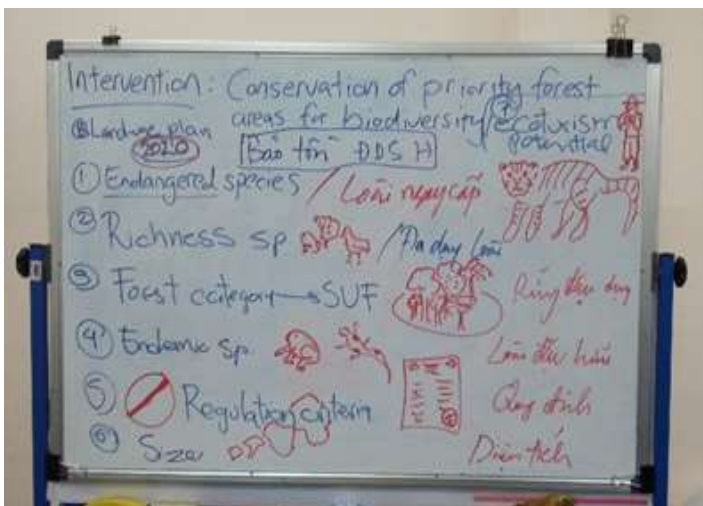 Intervention: Conservation of priority forest
areas for biodiversity/ecotuxism
potential
⑧ Landuse plan
2020
Bảo tồn ĐDSH
① Endangered species / Loài nguy cấp
② Richness sp / Đa dạng loài
③ Forest category → SUF Rừng đặc dụng
④ Endemic sp. Loài đặc hữu
⑤ Regulation criteria Quy định
⑥ Size Diện tích